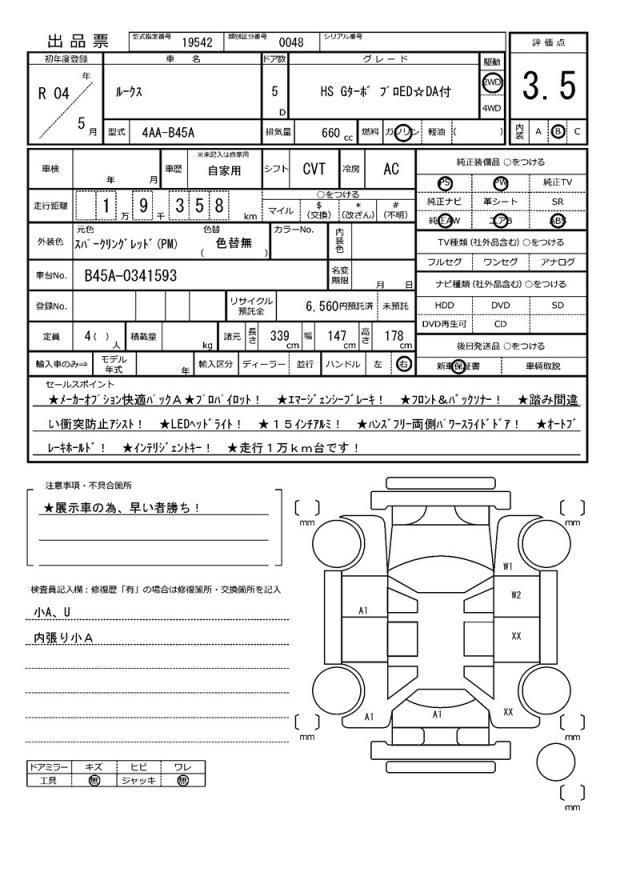 出 品 票 型式指定番号 19542 類別区分番号 0048 シリアル番号
評 価 点
3.5
内装 A B C
初年度登録 車 名 ドア数 グ レ ー ド 駆動
R 04 年 5 月 ルークス 5 D HS Gターボ プロED☆DA付 2WD 4WD
型式 4AA-B45A 排気量 660 cc 燃料 ガソリン 軽油 ( )
車検 年 月 車歴 ※未記入は自家用 自家用 シフト CVT 冷房 AC
走行距離 1 万 9 千 3 5 8 km ○をつける
マイル $ (交換) * (改ざん) # (不明)
外装色 元色 スパークリングレッド(PM) 色替 ( 色替無 ) カラーNo. 内装色
車台No. B45A-0341593 名変期限 月 日
登録No. リサイクル預託金 6,560円預託済 未預託
定員 4( ) 人 積載量 kg 諸元 長さ 339 cm 幅 147 cm 高さ 178 cm
輸入車のみ⇒ モデル年式 年 輸入区分 ディーラー 並行 ハンドル 左 右
純正装備品 ○をつける
PS PW 純正TV
純正ナビ 革シート SR
純正AW エアB ABS
TV種類 (社外品含む) ○をつける
フルセグ ワンセグ アナログ
ナビ種類 (社外品含む) ○をつける
HDD DVD SD
DVD再生可 CD
後日発送品 ○をつける
新車保証書 車輌取説
セールスポイント
★メーカーオプション快適パックA★プロパイロット! ★エマージェンシーブレーキ! ★フロント&バックソナー! ★踏み間違
い衝突防止アシスト! ★LEDヘッドライト! ★15インチアルミ! ★ハンズフリー両側パワースライドドア! ★オートブ
レーキホールド! ★インテリジェントキー! ★走行1万km台です!
注意事項・不具合箇所
★展示車の為、早い者勝ち!
検査員記入欄:修復歴「有」の場合は修復箇所・交換箇所を記入
小A、U
内張り小A
ドアミラー キズ ヒビ ワレ
工具 無 ジャッキ 無
[ ] mm
[ ] mm
W1
A1
W2
XX
A1
A1
XX
[ ] mm
[ ] mm
[ ] mm